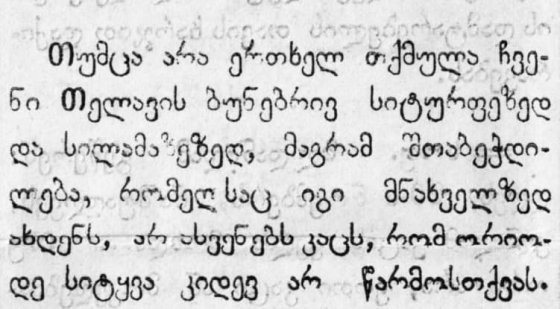 თუმცა არა ერთხელ თქმულა ჩვე-
ნი თელავის ბუნებრივ სიტურფეზედ
და სილამაზეზედ, მაგრამ შთაბეჭდი-
ლება, რომელსაც იგი მნახველზედ
ახდენს, არ ასვენებს კაცს, რომ ორიო-
დე სიტყვა კიდევ არ წარმოსთქვას.